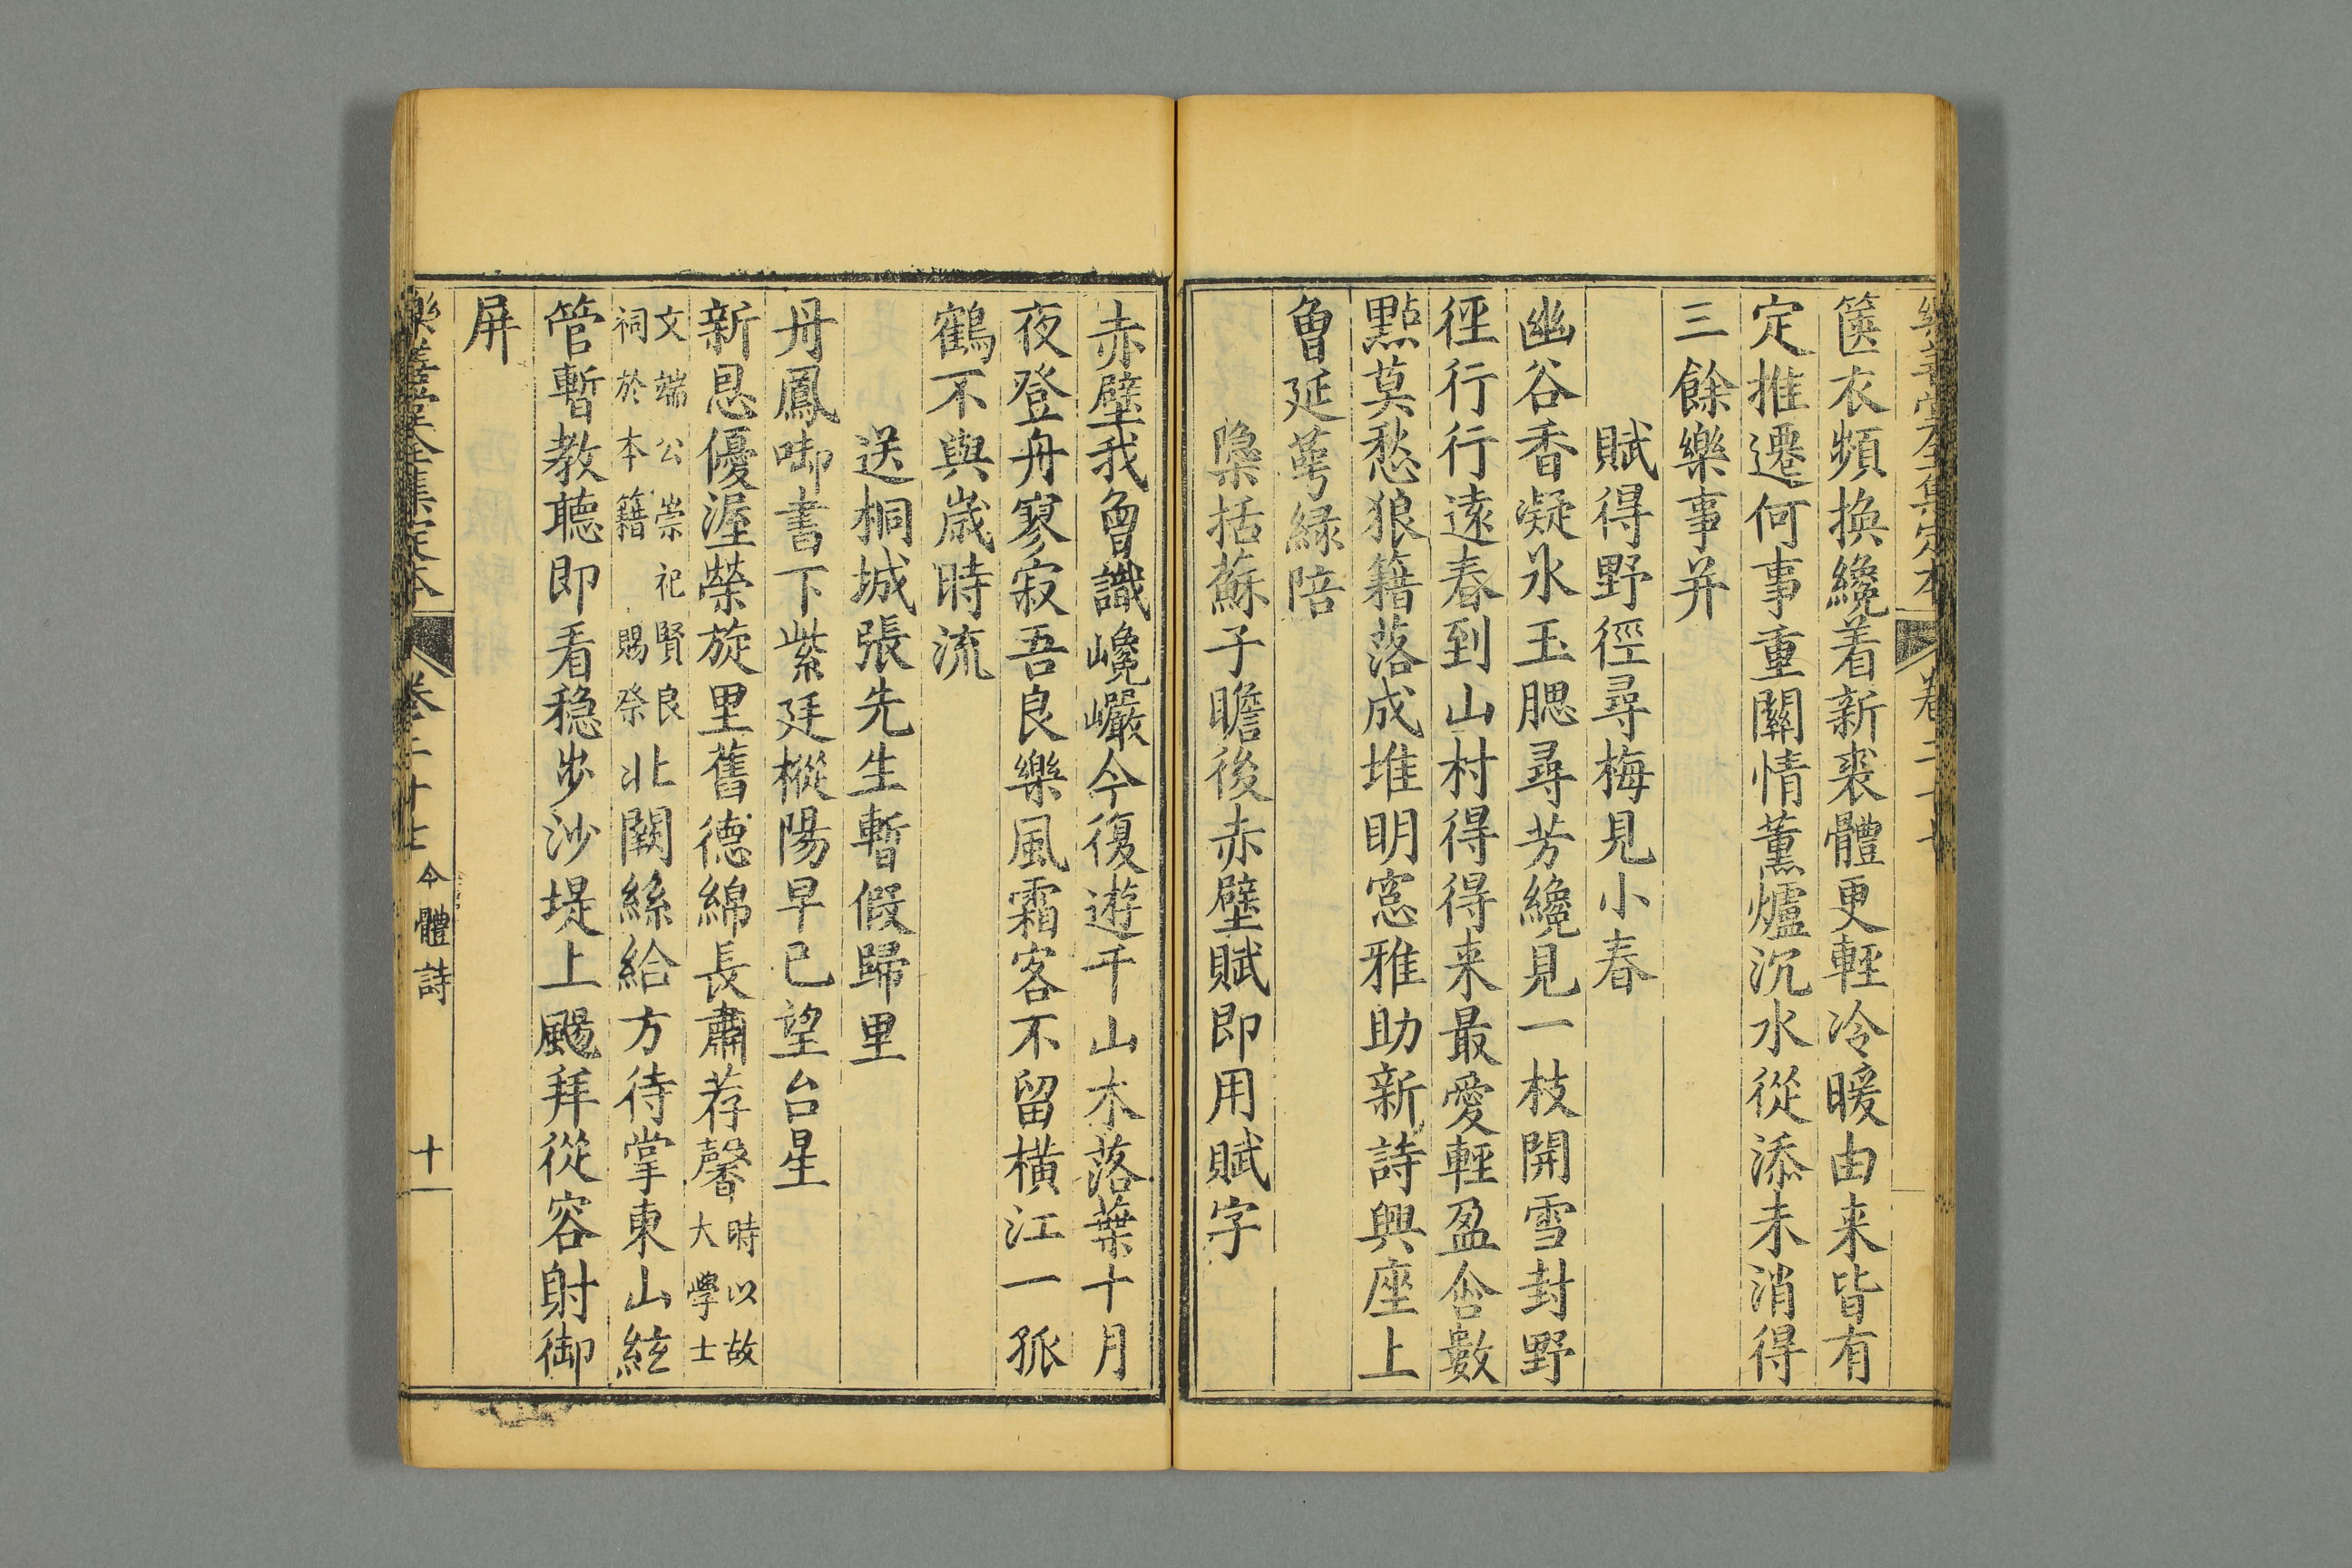 樂善堂全集定本 卷二十七
篋衣頻換纔着新裘體更輕冷暖由来皆有
定推遷何事重關情薰爐沉水從添未消得
三餘樂事并
賦得野徑尋梅見小春
幽谷香凝氷玉腮尋芳纔見一枝開雪封野
徑行行遠春到山村得得来最愛輕盈含數
點莫愁狼籍落成堆明窓雅助新詩興座上
曾延萼緑陪
檃括蘇子瞻後赤壁賦即用賦字
赤壁我曾識巉巖今復遊千山木落葉十月
夜登舟寥寂吾良樂風霜客不留橫江一孤
鶴不與歲時流
送桐城張先生暫假歸里
丹鳳啣書下紫廷樅陽早已望台星
新恩優渥榮旋里舊德綿長肅荐馨時以故大學士
文端公崇祀賢良祠於本籍賜祭北闕絲綸方待掌東山絃
管暫教聽即看穩步沙堤上颺拜從容對御
屏
樂善堂全集定本 卷二十七 今體詩 十